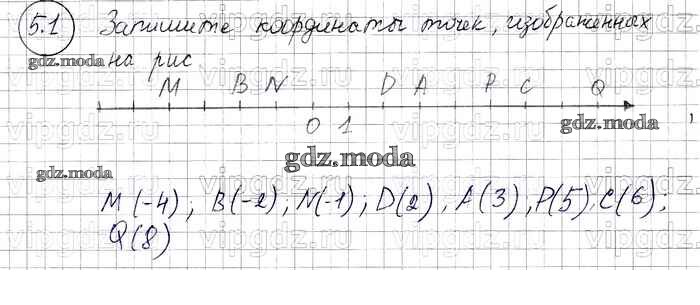 5.1 Запишите координаты точек, изображенных
gdz.moda на рис
M B N D A P C Q
0 1 gdz.moda ,
gdz.moda
gdz.moda
M(-4); B(-2); N(-1); D(2), A(3), P(5), C(6),
Q(8)